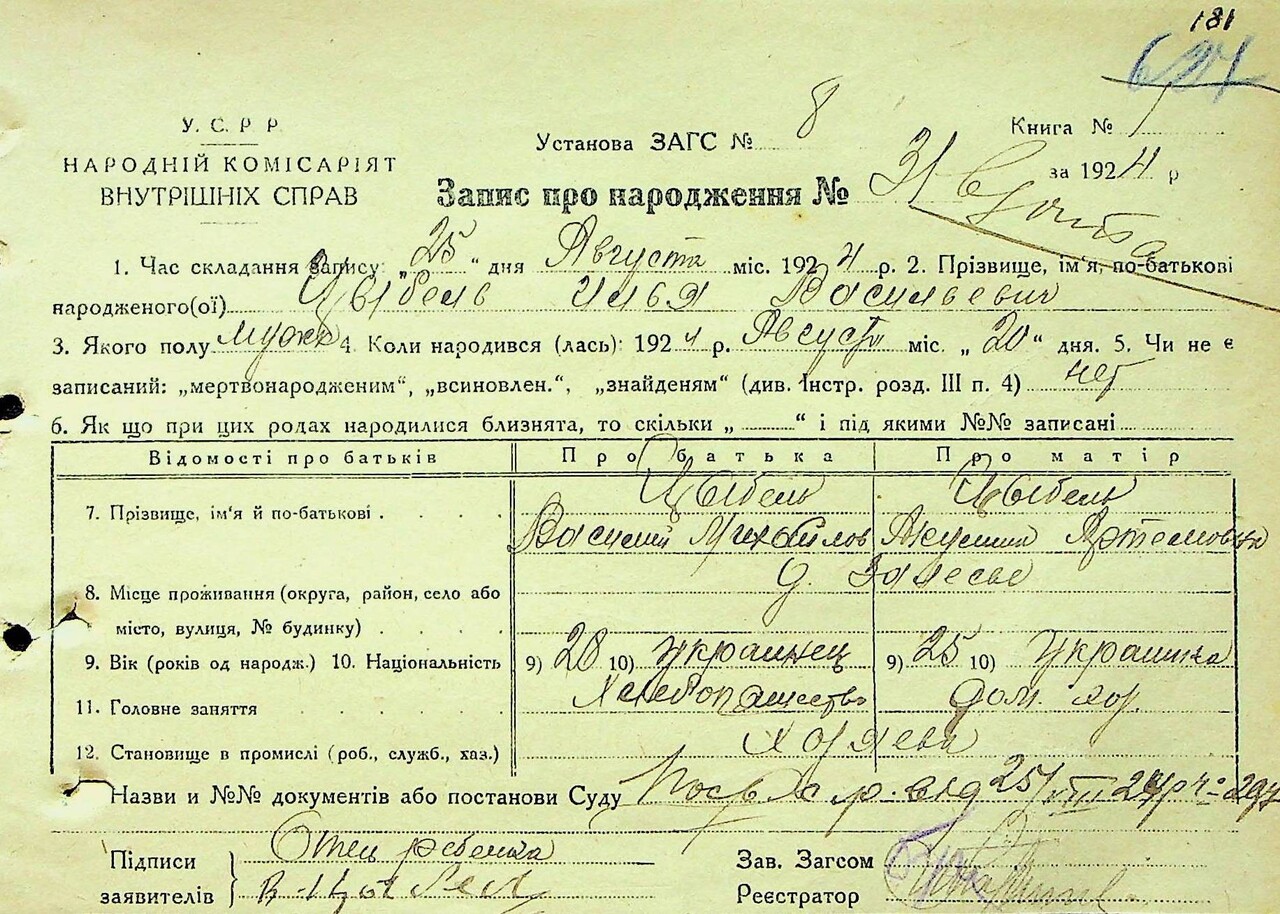 181
У. С. Р Р
НАРОДНІЙ КОМІСАРІЯТ
ВНУТРІШНІХ СПРАВ
Установа ЗАГС № 8
Книга № 1
за 1924 р
Запис про народження № 31
1. Час складання запису: „25“ дня Августа міс. 1924 р. 2. Прізвище, ім'я, по-батькові
народженого(ої) Цыбель Илья Васильевич
3. Якого полу мужс 4. Коли народився (лась): 1924 р. Августа міс. „20“ дня. 5. Чи не є
записаний: „мертвонародженим“, „всиновлен.“, „знайденям“ (див. Інстр. розд. III п. 4) нет
6. Як що при цих родах народилися близнята, то скільки „ “ і під якими №№ записані
Відомості про батьків Про батька Про матір
7. Прізвище, ім'я й по-батькові Цыбель Цыбель
Василий Михайлов Акулина Артемовна
8. Місце проживання (округа, район, село або д. Залесье
місто, вулиця, № будинку)
9. Вік (років од народж.) 10. Національність 9) 28 10) украинец 9) 25 10) украинка
11. Головне заняття Хлебопашество дом. хоз.
12. Становище в промислі (роб., служб., хаз.) Хозяева
Назви и №№ документів або постанови Суду від 25/VIII 24 р
Підписи Отец ребенка Зав. Загсом
заявителів В. Цыбель Реєстратор